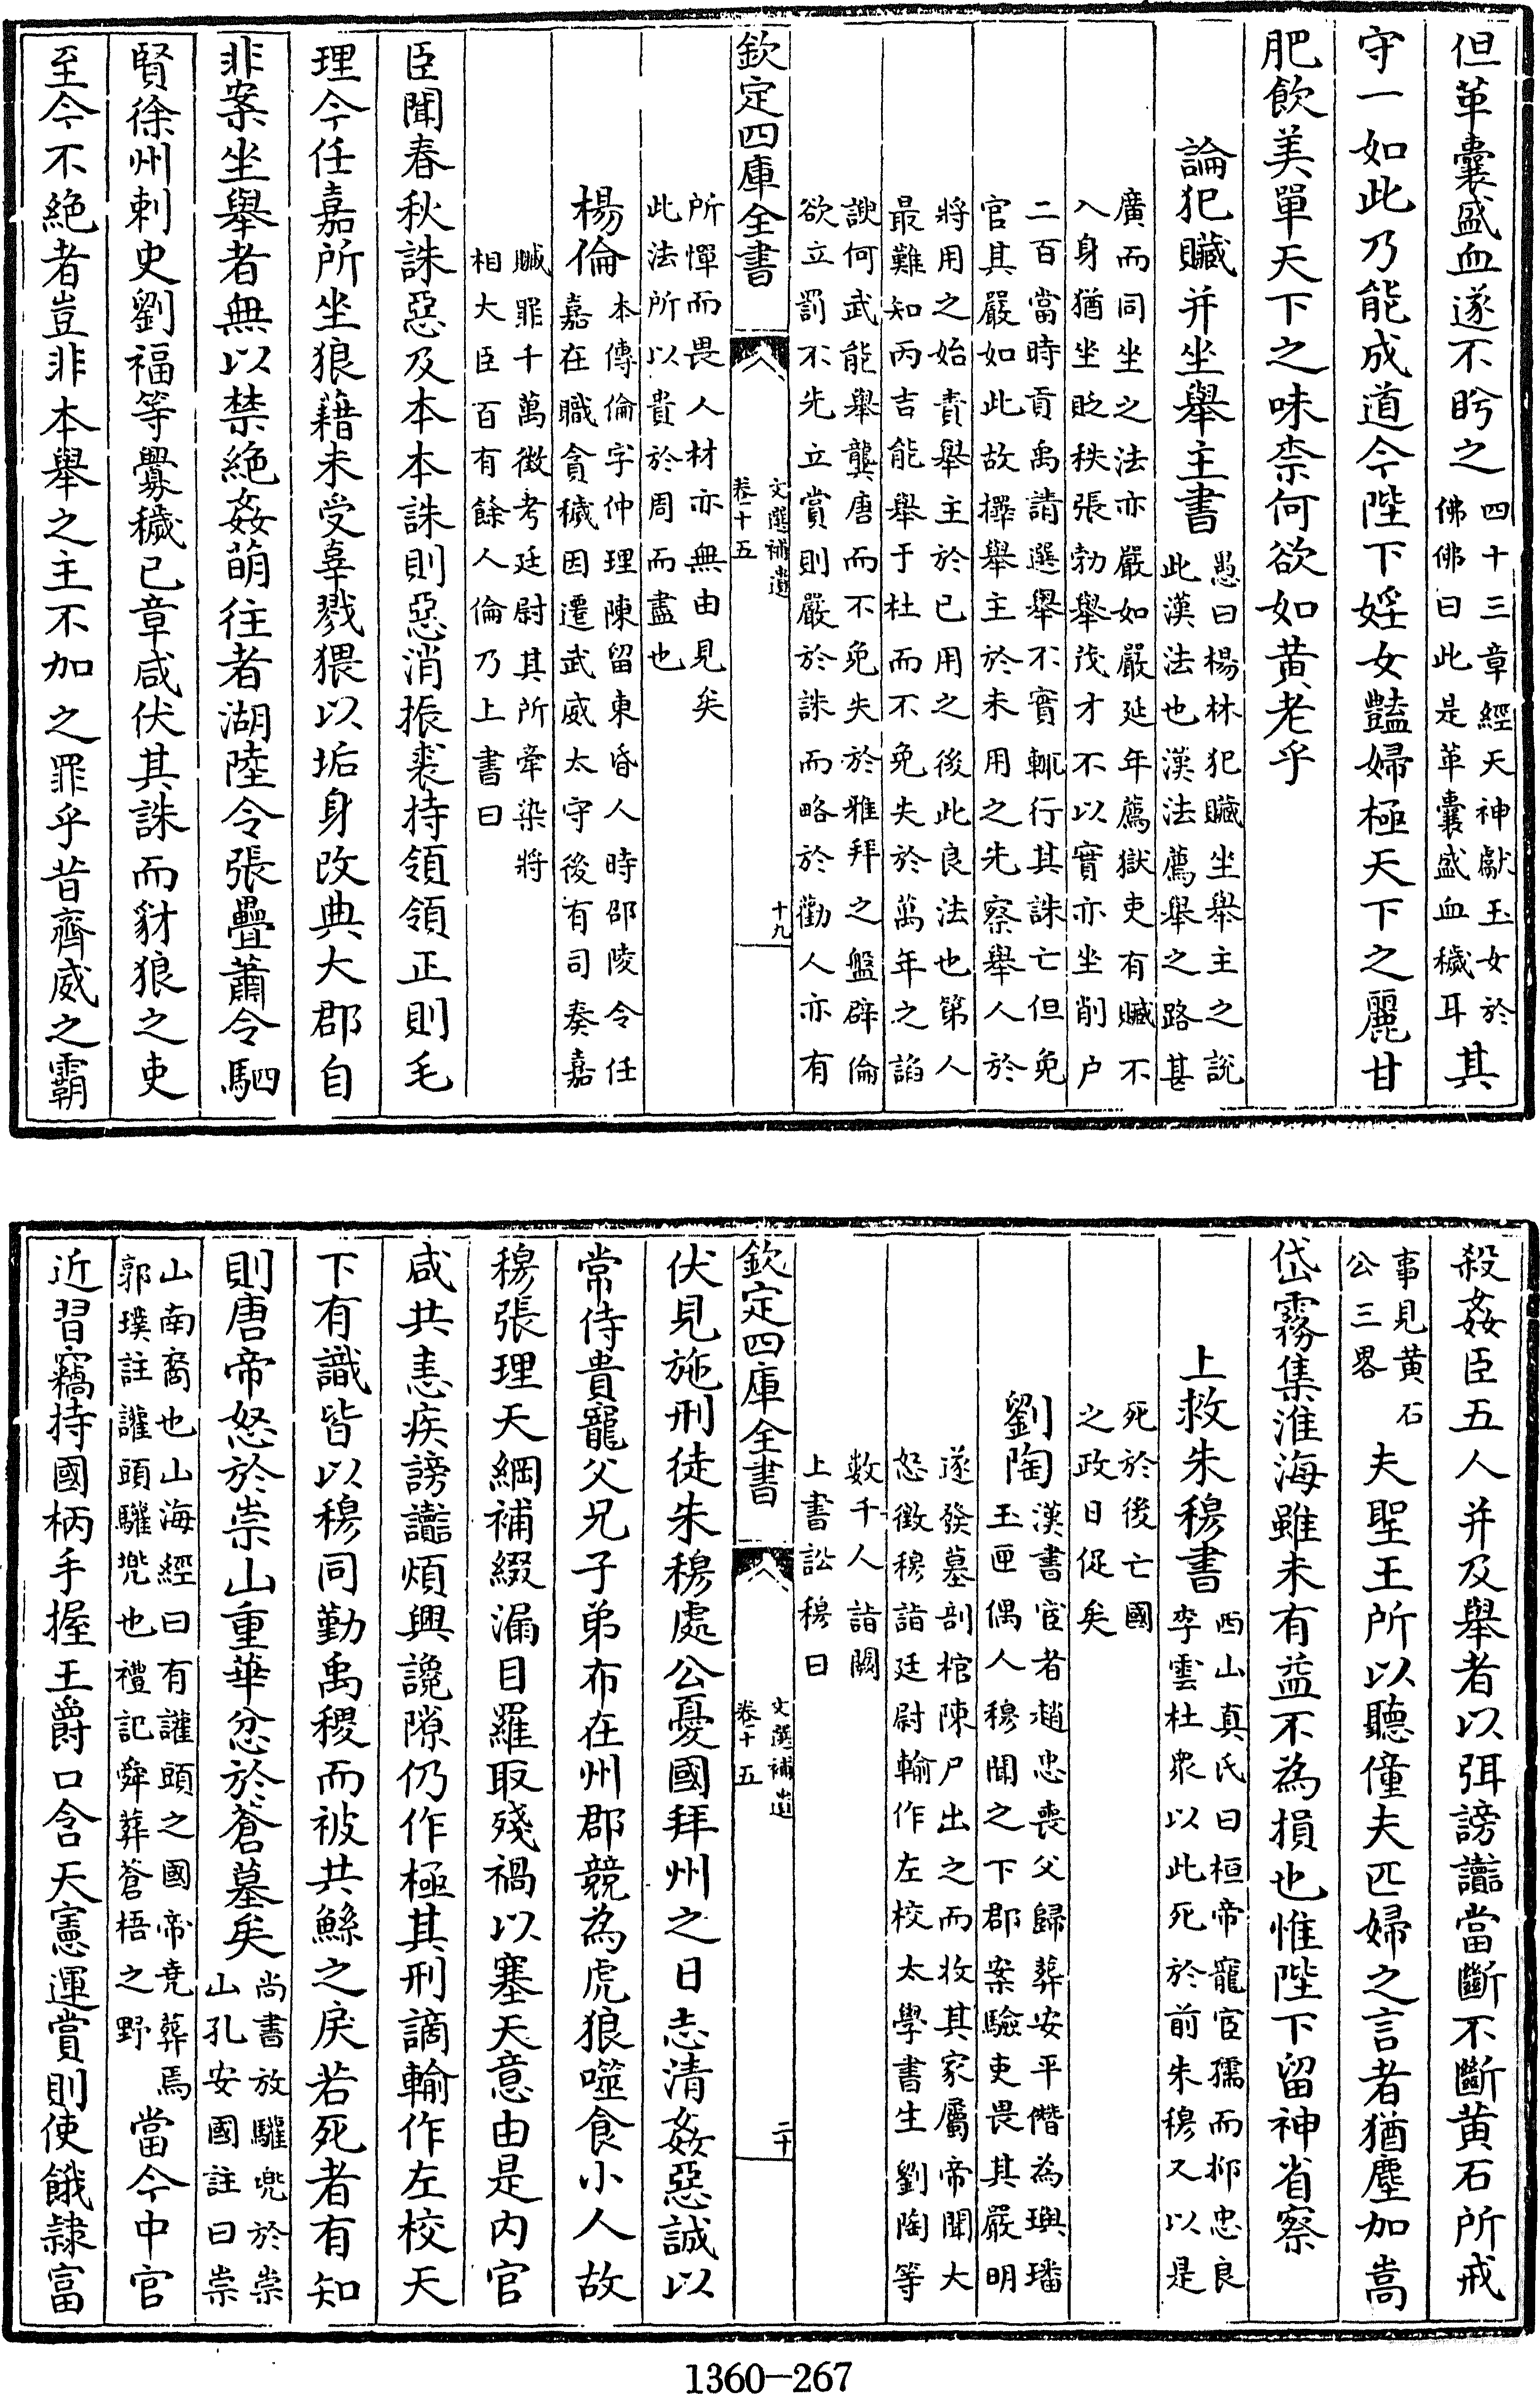 但革囊盛血遂不盻之四十三章經天神獻玉女於
佛佛曰此是革囊盛血穢耳其
守一如此乃能成道今陛下婬女豔婦極天下之麗甘
肥飲美單天下之味柰何欲如黃老乎
論犯贓并坐舉主書愚曰楊林犯贓坐舉主之說
此漢法也漢法薦舉之路甚
廣而同坐之法亦嚴如嚴延年薦獄吏有贓不
入身猶坐貶秩張勃舉茂才不以實亦坐削户
二百當時貢禹請選舉不實輒行其誅亡但免
官其嚴如此故擇舉主於未用之先察舉人於
將用之始責舉主於已用之後此良法也第人
最難知丙吉能舉于杜而不免失於萬年之諂
諛何武能舉龔唐而不免失於雅拜之盤辟倫
欲立罰不先立賞則嚴於誅而略於勸人亦有
欽定四庫全書
文選補遺
卷十五
十九
所憚而畏人材亦無由見矣
此法所以貴於周而盡也
楊倫本傳倫字仲理陳留東昏人時邵陵令任
嘉在職貪穢因遷武威太守後有司奏嘉
贓罪千萬徵考廷尉其所牽染將
相大臣百有餘人倫乃上書曰
臣聞春秋誅惡及本本誅則惡消振裘持領領正則毛
理今任嘉所坐狼藉未受辜戮猥以垢身改典大郡自
非案坐舉者無以禁絶姦萌往者湖陸令張疊蕭令駟
賢徐州刺史劉福等釁穢已章咸伏其誅而豺狼之吏
至今不絶者豈非本舉之主不加之罪乎昔齊威之霸
殺姦臣五人并及舉者以弭謗讟當斷不斷黄石所戒
事見黄石
公三畧夫聖王所以聽僮夫匹婦之言者猶塵加嵩
岱霧集淮海雖未有益不為損也惟陛下留神省察
上救朱穆書西山真氏曰桓帝寵宦孺而抑忠良
李雲杜衆以此死於前朱穆又以是
死於後亡國
之政日促矣
劉陶漢書宦者趙忠喪父歸葬安平僭為璵璠
玉匣偶人穆聞之下郡案驗吏畏其嚴明
遂發墓剖棺陳尸出之而收其家屬帝聞大
怒徵穆詣廷尉輸作左校太學書生劉陶等
數千人詣闕
上書訟穆曰
欽定四庫全書
文選補遺
卷十五
二十
伏見施刑徒朱穆處公憂國拜州之日志清姦惡誠以
常侍貴寵父兄子弟布在州郡競為虎狼噬食小人故
穆張理天綱補綴漏目羅取殘禍以塞天意由是内官
咸共恚疾謗讟煩興讒隙仍作極其刑謫輸作左校天
下有識皆以穆同勤禹稷而被共鯀之戾若死者有知
則唐帝怒於崇山重華忿於蒼墓矣尚書放驩兜於崇
山孔安國註曰崇
山南裔也山海經曰有讙頭之國帝堯葬焉
郭璞註讙頭驩兜也禮記舜葬蒼梧之野當今中官
近習竊持國柄手握王爵口含天憲運賞則使餓隷富
1360-267